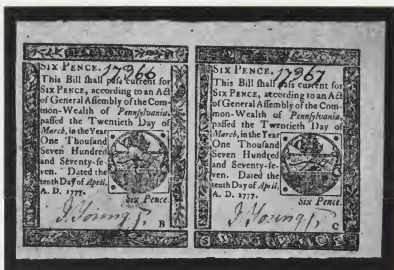 SIX PENCE. 17366
This Bill ſhall paſs current for
SIX PENCE, according to an Act
of General Aſſembly of the Com-
mon-Wealth of Pennſylvania,
paſſed the Twentieth Day of
March, in the Year
One Thouſand
Seven Hundred
and Seventy-ſe-
ven. Dated the
tenth Day of April,
A. D. 1777.
Six Pence.
J. Young
B
SIX PENCE. 17367
This Bill ſhall paſs current for
SIX PENCE, according to an Act
of General Aſſembly of the Com-
mon-Wealth of Pennſylvania,
paſſed the Twentieth Day of
March, in the Year
One Thouſand
Seven Hundred
and Seventy-ſe-
ven. Dated the
tenth Day of April,
A. D. 1777.
Six Pence.
J. Young
C